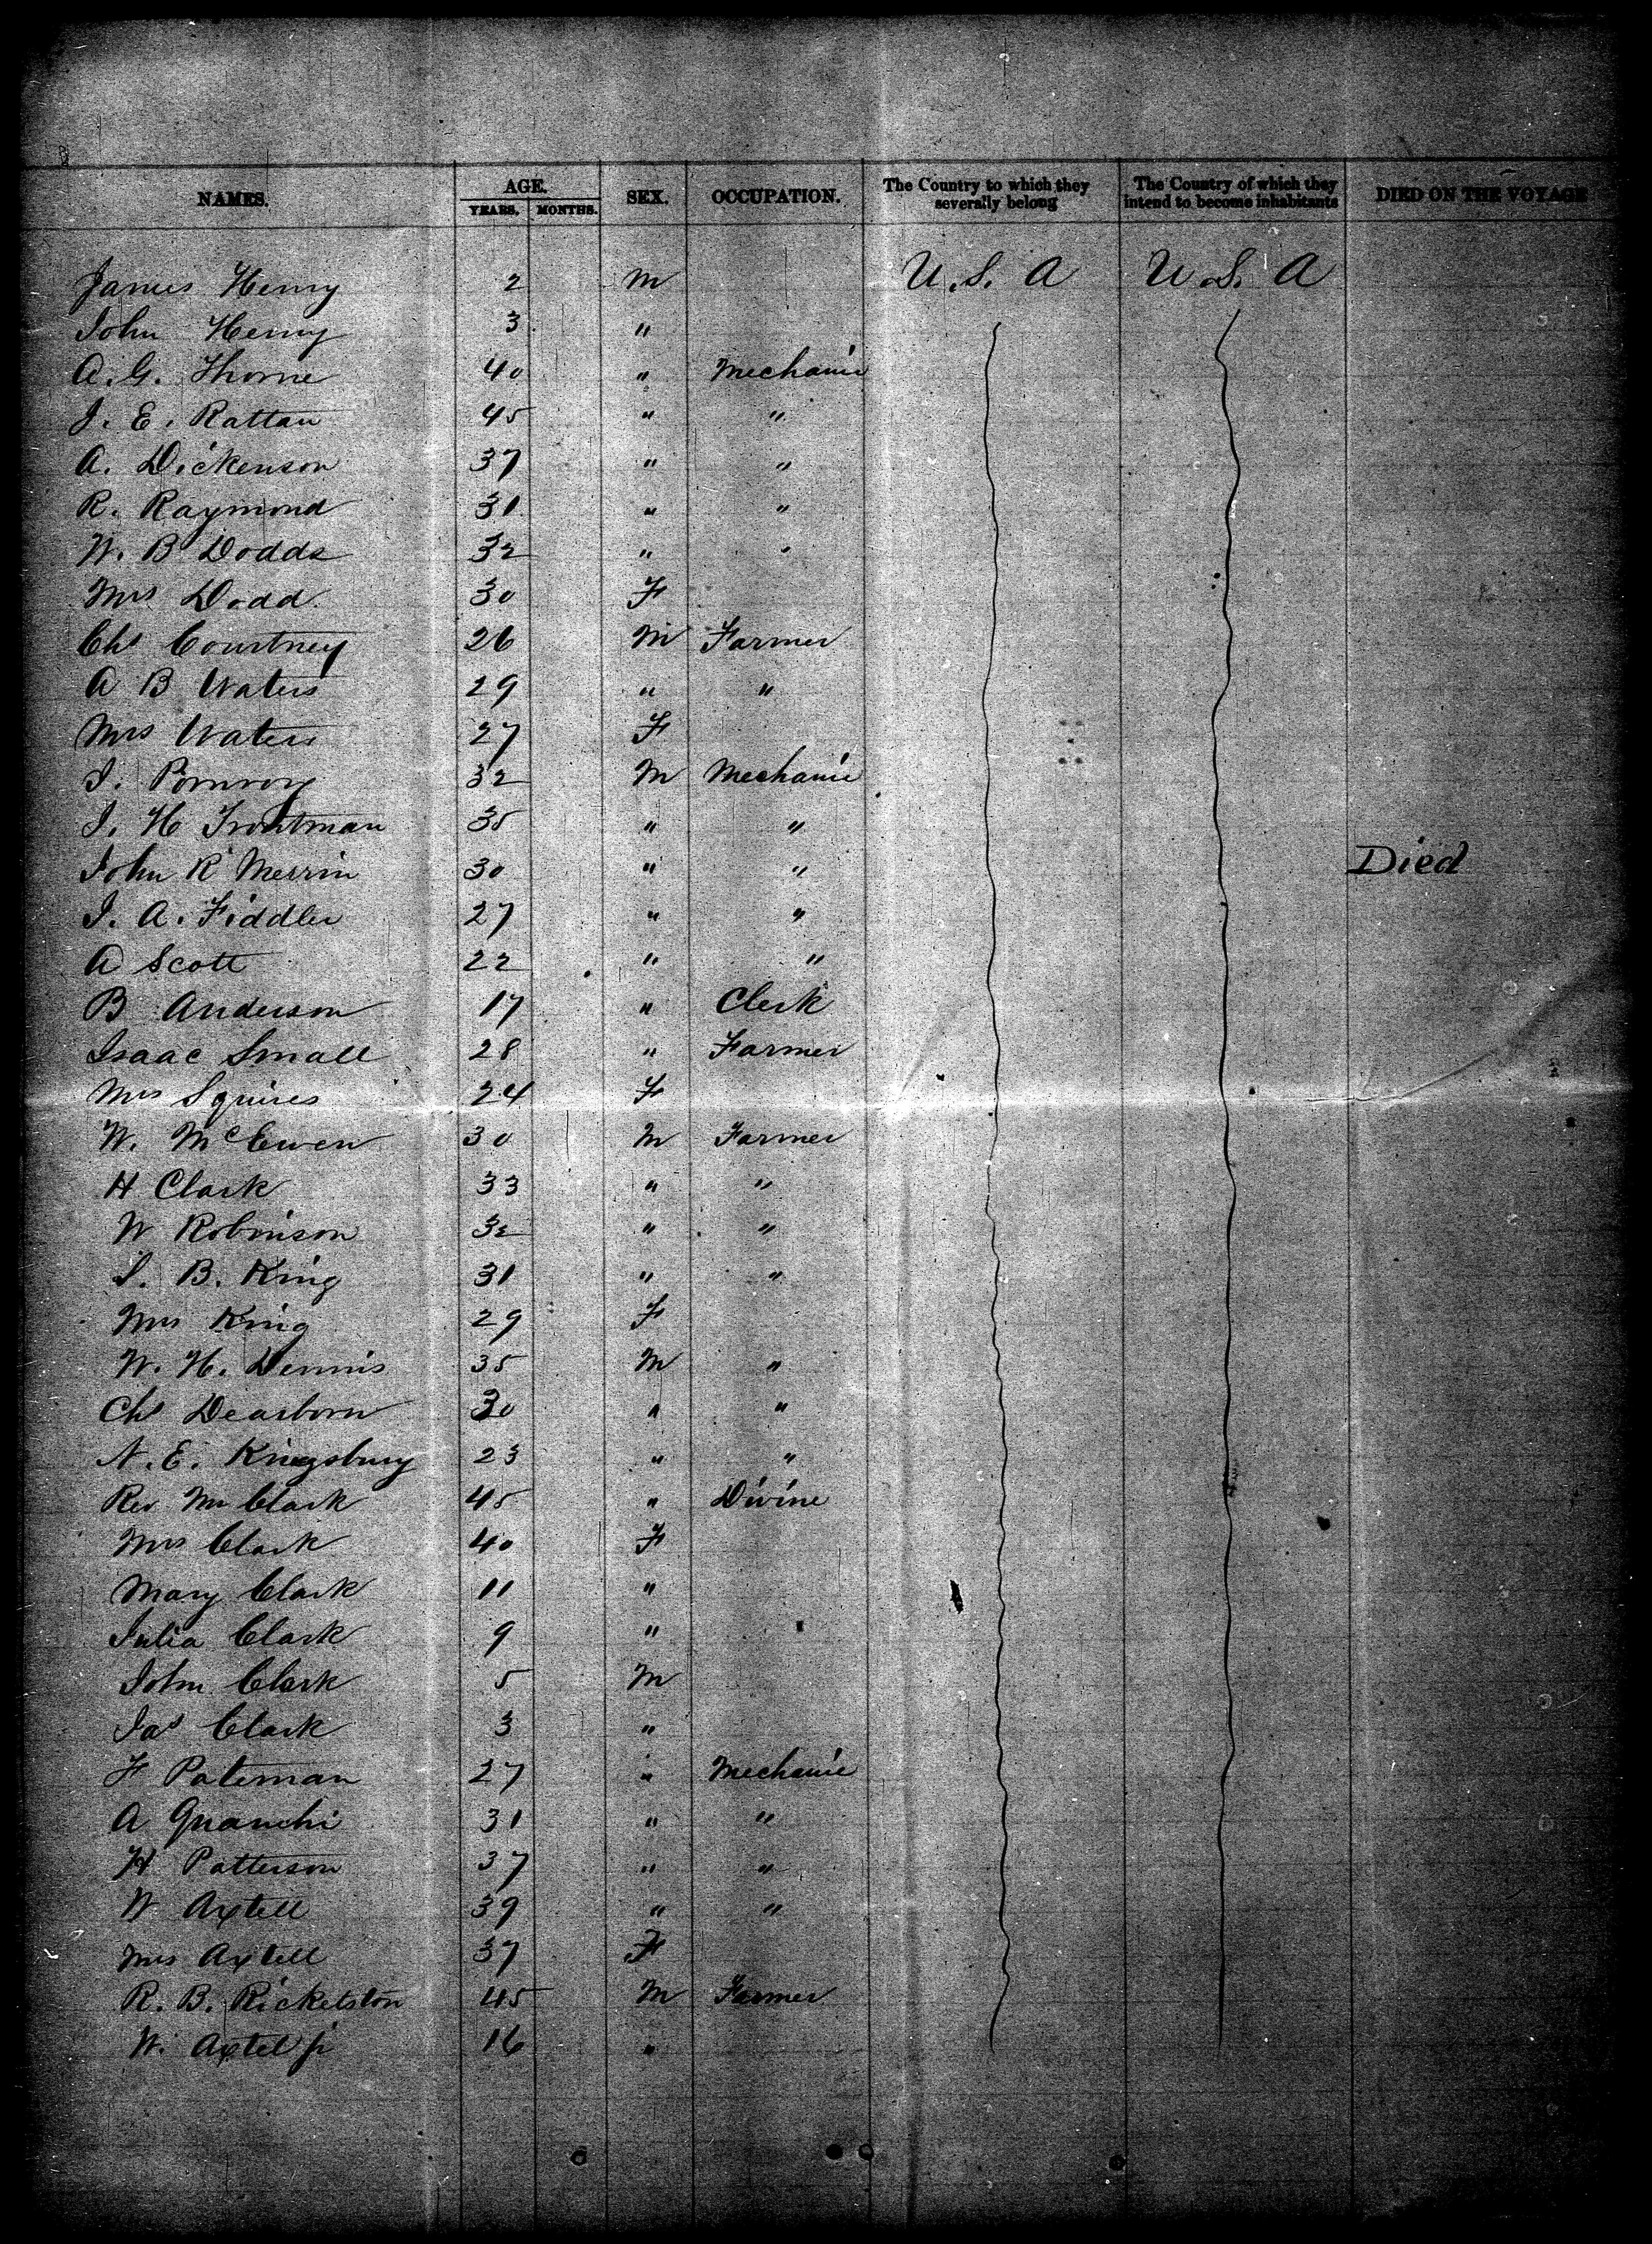 NAMES. AGE. YEARS. MONTHS. SEX. OCCUPATION. The Country to which they severally belong The Country of which they intend to become inhabitants DIED ON THE VOYAGE
James Henry 2 M U.S. A U.S. A
John Henry 3 "
A. G. Thorne 40 " Mechanic
J. E. Rattan 45 " "
A. Dickenson 37 " "
R. Raymond 31 " "
W. B Dodds 32 " "
Mrs Dodd 30 F
Chs Courtney 26 M Farmer
A B Waters 29 " "
Mrs Waters 27 F
J. Pomroy 32 M Mechanic
J. H Troutman 35 " "
John R Merrin 30 " " Died
J. A. Fiddler 27 " "
A Scott 22 " "
B Anderson 17 " Clerk
Isaac Small 28 " Farmer
Mrs Squires 24 F
W. McEwen 30 M Farmer
H Clark 33 " "
W Robinson 32 " "
S. B. King 31 " "
Mrs King 29 F
W. H. Dennis 35 M "
Chs Dearborn 30 " "
N. E. Kingsbury 23 " "
Rev Mr Clark 45 " Divine
Mrs Clark 40 F
Mary Clark 11 "
Julia Clark 9 "
John Clark 5 M
Jas Clark 3 "
F Pateman 27 " Mechanic
A Quanchi 31 " "
H Patterson 37 " "
W Axtell 39 " "
Mrs Axtell 37 F
R. B. Ricketston 45 M Farmer
W. Axtel jr 16 "